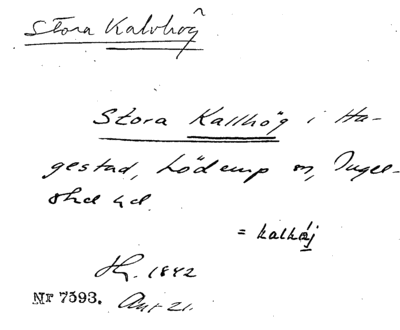 Stora Kalvhög
Stora Kallhög i Ha-
gestad, Löderup sn, Ingel-
stad hd.
= kalhój
1842
Nr 7593. Ant 21.